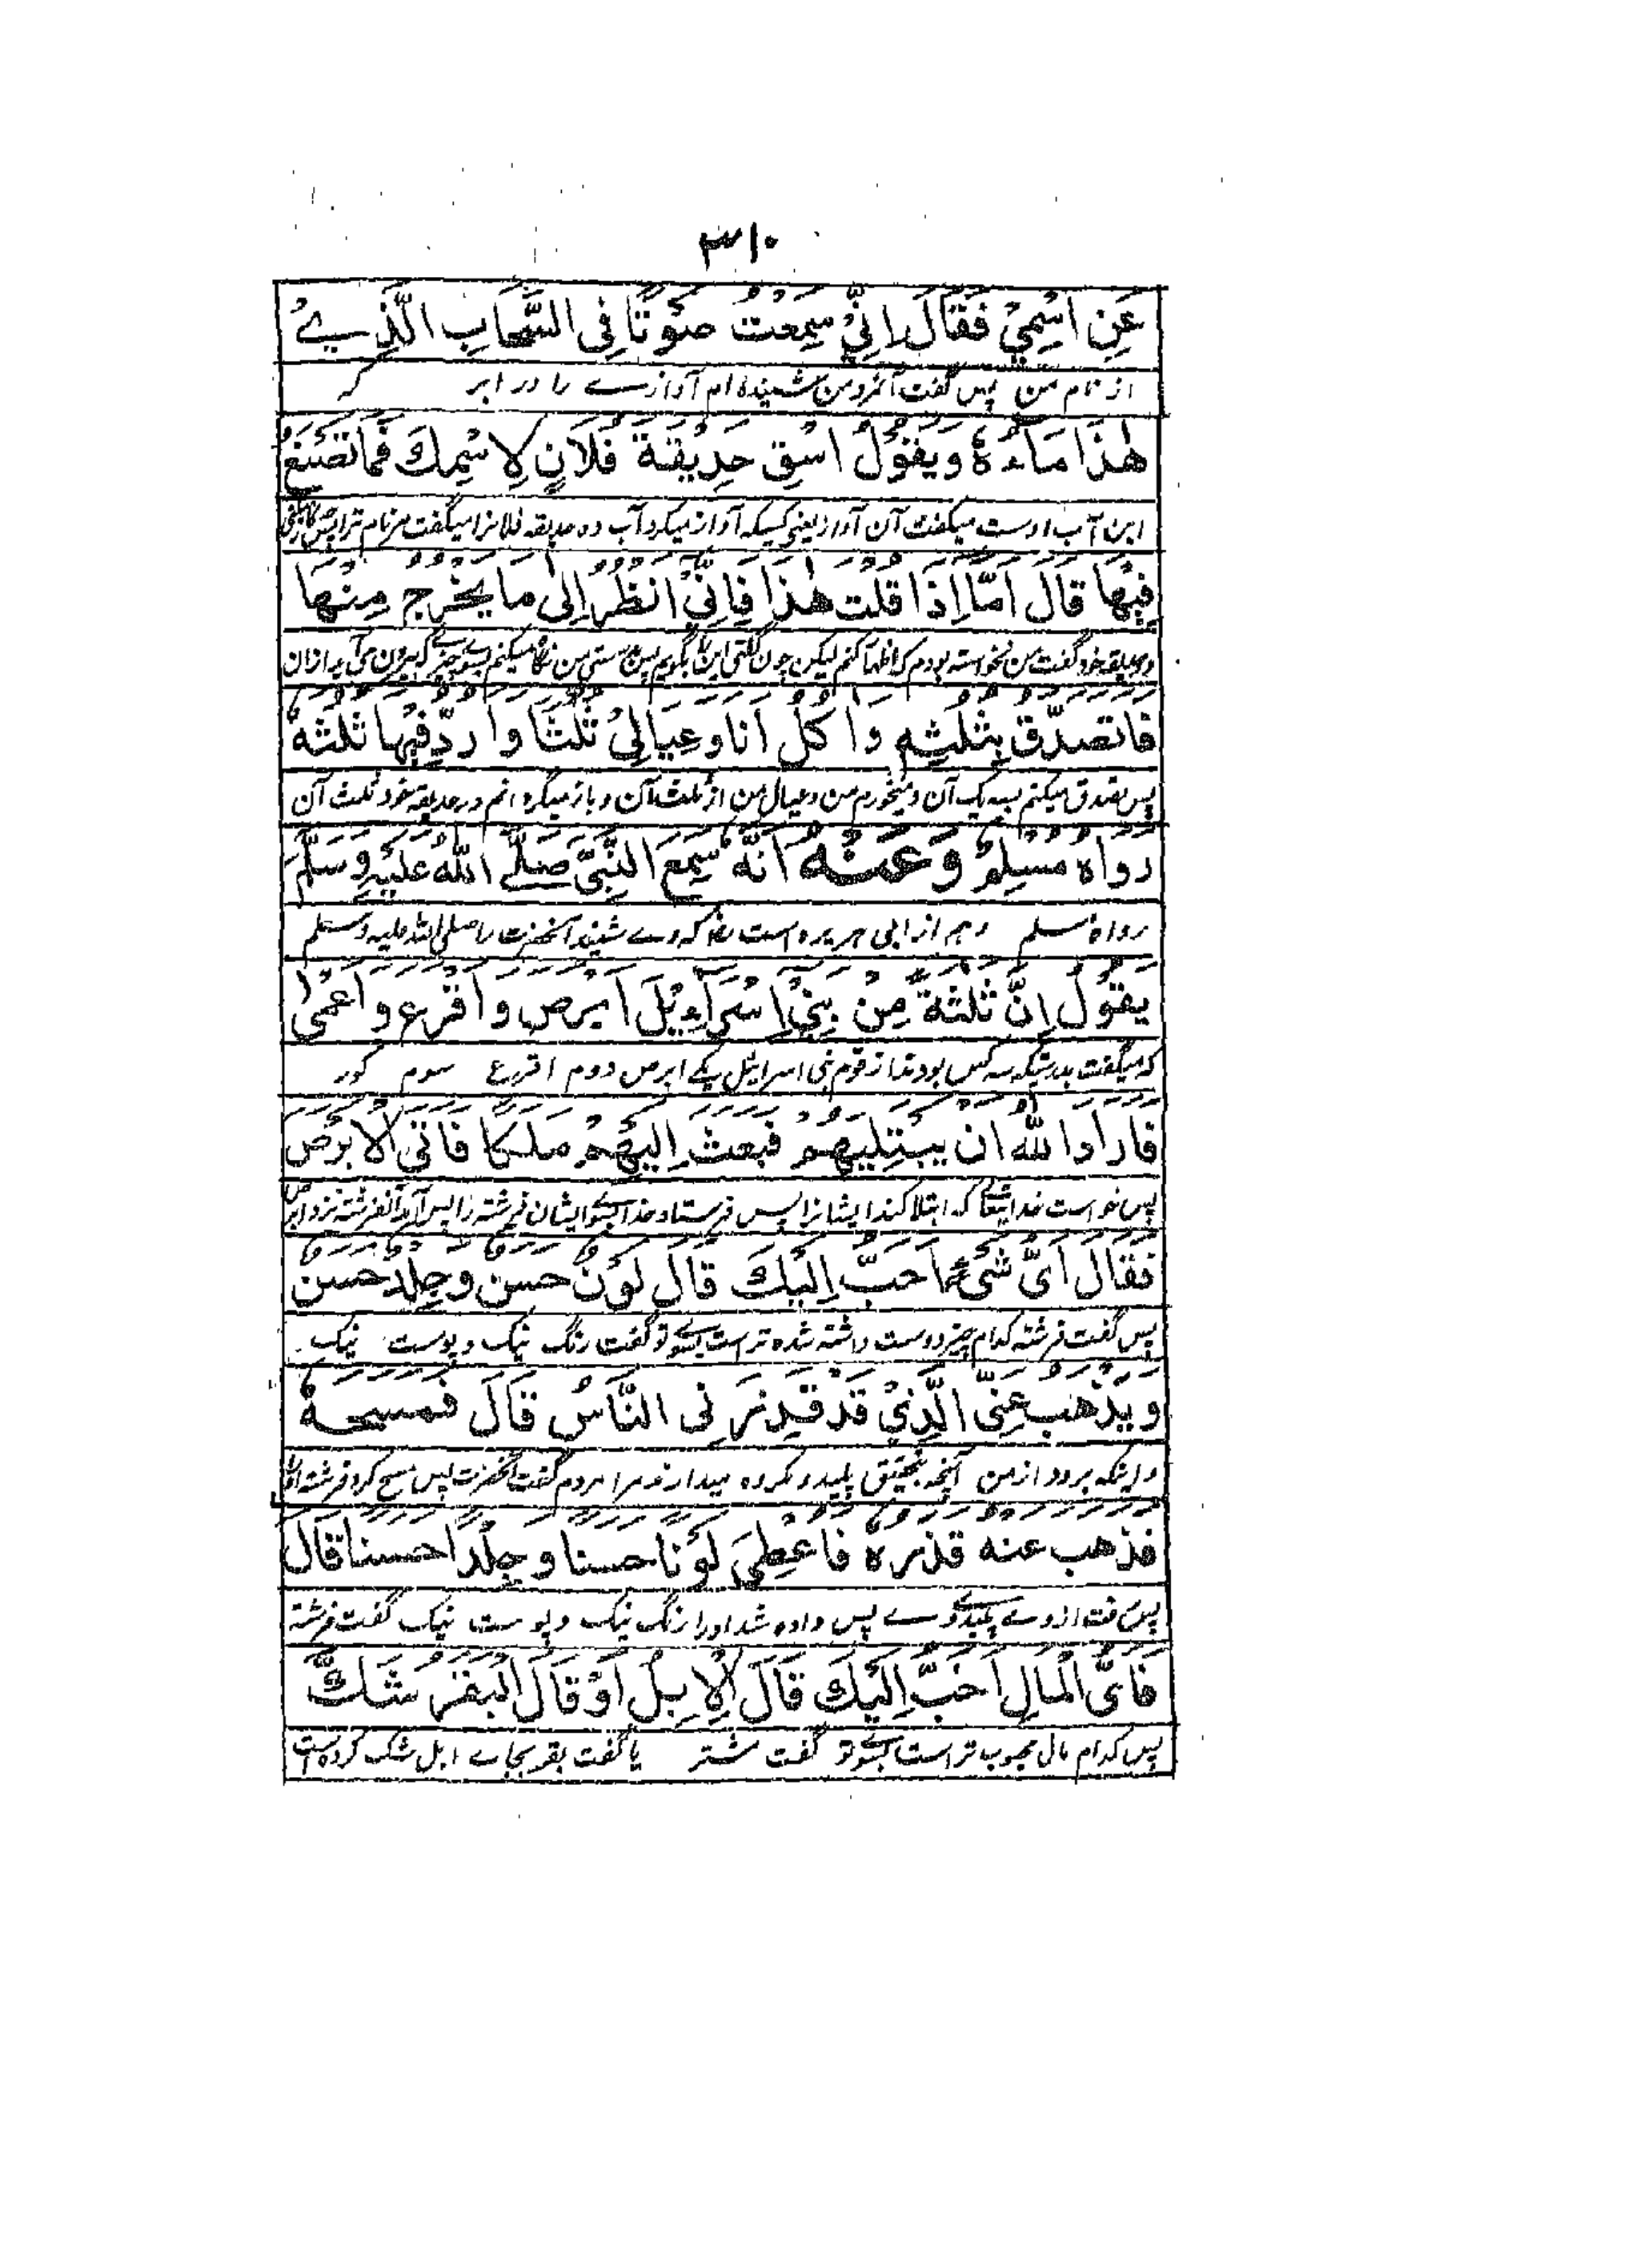 ۳۱۰
عَنِ اسْمِيْ فَقَالَ اِنِّيْ سَمِعْتُ صَوْتًا فِي السَّحَابِ الَّذِيْ
از نام من پس گفت آنمرد من شنیده ام آوازے را در ابر که
هٰذَا مَاءُهٗ وَيَقُوْلُ اسْقِ حَدِيْقَةَ فُلَانٍ لِاسْمِكَ فَمَا تَصْنَعُ
این آب اوست میگفت آن آواز یعنی کسیکه آواز میکرد آب ده حدیقه فلانرا میگفت مر نام ترا پس
فِيْهَا قَالَ اَمَّا اِذَا قُلْتَ هٰذَا فَاِنِّيْ اَنْظُرُ اِلٰى مَا يَخْرُجُ مِنْهَا
گفت من نخواسته بودم که اظهار کنم لیکن چون گفتی این را بگویم پس بدرستی من نگاه میکنم بسوی چیزے که بیرون می آید ازان
فَاَتَصَدَّقُ بِثُلُثِهٖ وَاٰكُلُ اَنَا وَعِيَالِيْ ثُلُثًا وَاَرُدُّ فِيْهَا ثُلُثَهٗ
پس تصدق میکنم بسه یک آن و میخورم من و عیال من از ثلث آن و باز میگردانم در حدیقه خود ثلث آن
رَوَاهُ مُسْلِمٌ وَعَنْهُ اَنَّهٗ سَمِعَ النَّبِيَّ صَلَّى اللّٰهُ عَلَيْهِ وَسَلَّمَ
رواه مسلم وهم از ابی هریره است که وے شنید آنحضرت را صلی الله علیه وسلم
يَقُوْلُ اِنَّ ثَلٰثَةً مِنْ بَنِيْ اِسْرَآءِيْلَ اَبْرَصَ وَاَقْرَعَ وَاَعْمٰى
که میگفت بدرستیکه سه کس بودند از قوم بنی اسرائیل یکے ابرص دوم اقرع سوم کور
فَاَرَادَ اللّٰهُ اَنْ يَبْتَلِيَهُمْ فَبَعَثَ اِلَيْهِمْ مَلَكًا فَاَتَى الْاَبْرَصَ
پس خواست خدایتعالے که ابتلا کند ایشانرا پس فرستاد خدا بسوے ایشان فرشته را پس آمد آنفرشته نزد ابرص
فَقَالَ اَيُّ شَيْءٍ اَحَبُّ اِلَيْكَ قَالَ لَوْنٌ حَسَنٌ وَجِلْدٌ حَسَنٌ
پس گفت فرشته کدام چیز دوست داشته شده تر است بسوے تو گفت رنگ نیک و پوست نیک
وَيَذْهَبُ عَنِّي الَّذِيْ قَدْ قَذِرَنِي النَّاسُ قَالَ فَمَسَحَهٗ
و اینکه برود از من آنچه بتحقیق پلید و مکروه میدارند مرا مردم گفت آنحضرت پس مسح کرد فرشته اورا
فَذَهَبَ عَنْهُ قَذَرُهٗ فَاُعْطِيَ لَوْنًا حَسَنًا وَجِلْدًا حَسَنًا قَالَ
پس رفت ازوے پلیدی وے پس داده شد اورا رنگ نیک و پوست نیک گفت فرشته
فَاَيُّ الْمَالِ اَحَبُّ اِلَيْكَ قَالَ الْاِبِلُ اَوْ قَالَ الْبَقَرُ شَكَّ
پس کدام مال محبوب تر است بسوے تو گفت شتر یا گفت بقر بجاے ابل شک کرده است